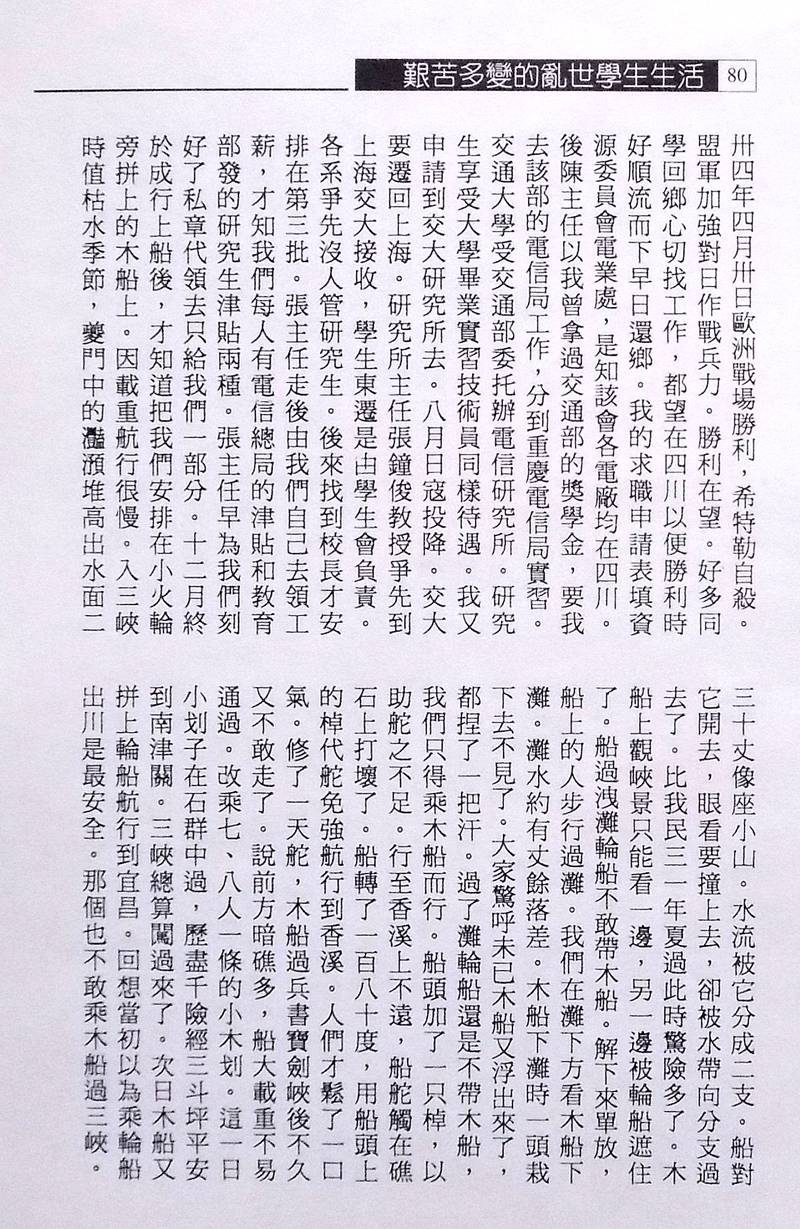 艱苦多變的亂世學生生活
80
卅四年四月卅日歐洲戰場勝利，希特勒自殺。
盟軍加強對日作戰兵力。勝利在望。好多同
學回鄉心切找工作，都望在四川以便勝利時
好順流而下早日還鄉。我的求職申請表填資
源委員會電業處，是知該會各電廠均在四川。
後陳主任以我曾拿過交通部的獎學金，要我
去該部的電信局工作，分到重慶電信局實習。
交通大學受交通部委托辦電信研究所。研究
生享受大學畢業實習技術員同樣待遇。我又
申請到交大研究所去。八月日寇投降。交大
要遷回上海。研究所主任張鐘俊教授爭先到
上海交大接收，學生東遷是由學生會負責。
各系爭先沒人管研究生。後來找到校長才安
排在第三批。張主任走後由我們自己去領工
薪，才知我們每人有電信總局的津貼和教育
部發的研究生津貼兩種。張主任早為我們刻
好了私章代領去只給我們一部分。十二月終
於成行上船後，才知道把我們安排在小火輪
旁拼上的木船上。因載重航行很慢。入三峽
時值枯水季節，夔門中的灩澦堆高出水面二
三十丈像座小山。水流被它分成二支。船對
它開去，眼看要撞上去，卻被水帶向分支過
去了。比我民三一年夏過此時驚險多了。木
船上觀峽景只能看一邊，另一邊被輪船遮住
了。船過洩灘輪船不敢帶木船。解下來單放，
船上的人步行過灘。我們在灘下方看木船下
灘。灘水約有丈餘落差。木船下灘時一頭栽
下去不見了。大家驚呼未已木船又浮出來了，
都捏了一把汗。過了灘輪船還是不帶木船，
我們只得乘木船而行。船頭加了一只棹，以
助舵之不足。行至香溪上不遠，船舵觸在礁
石上打壞了。船轉了一百八十度，用船頭上
的棹代舵免強航行到香溪。人們才鬆了一口
氣。修了一天舵，木船過兵書寶劍峽後不久
又不敢走了。說前方暗礁多，船大載重不易
通過。改乘七、八人一條的小木划。這一日
小划子在石群中過，歷盡千險經三斗坪平安
到南津關。三峽總算闖過來了。次日木船又
拼上輪船航行到宜昌。回想當初以為乘輪船
出川是最安全。那個也不敢乘木船過三峽。